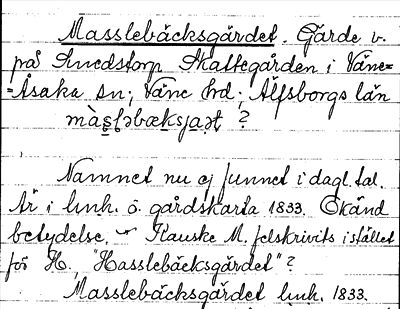 Masslebäcksgärdet. Gärde v.
på Snedstorp Skattegården i Väne-
=Åsaka sn; Väne hd; Älfsborgs län
màs̤l̥əbæksjaət ?
Namnet nu ej funnet i dagl. tal.
Är i link. ö. gårdskarta 1833. Okänd
betydelse. Kanske M. felskrivits istället
för H., "Hasslebäcksgärdet"?
Masslebäcksgärdet link. 1833.